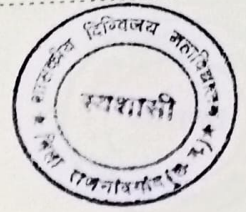 शासकीय दिग्विजय महाविद्यालय
स्वशासी
जिला राजनांदगांव (छ.ग.)